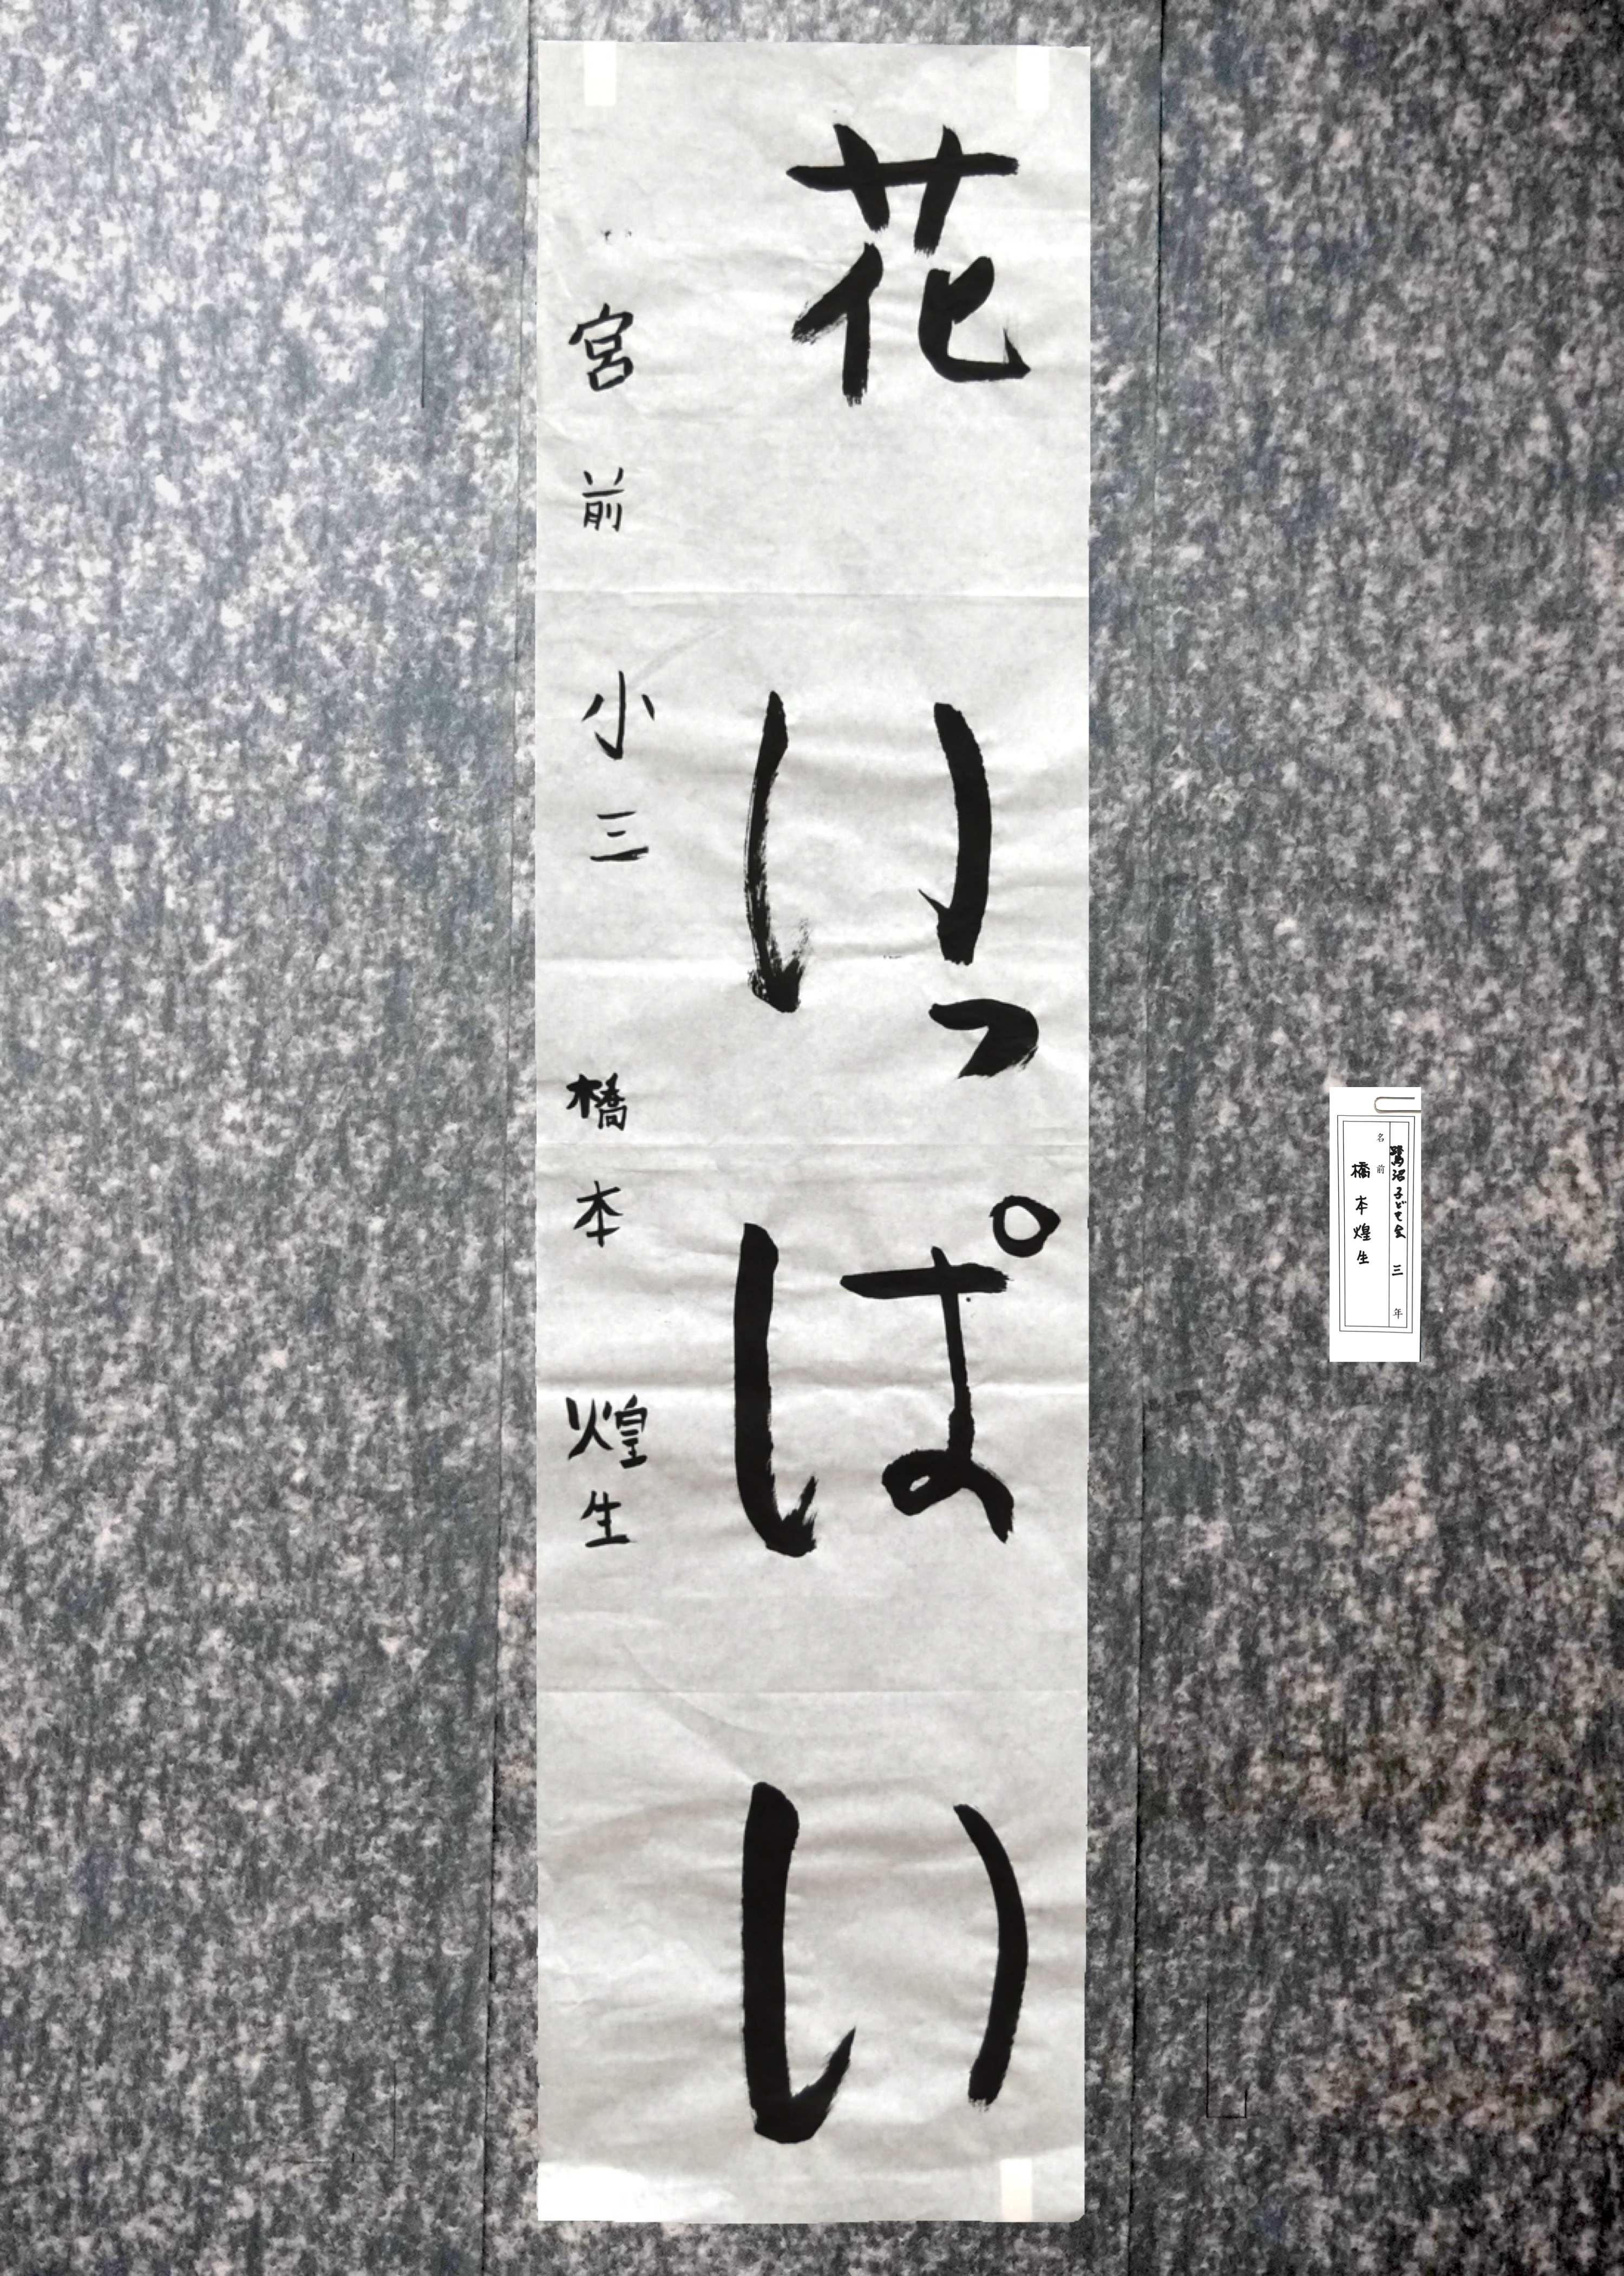 花いっぱい
宮前小三 橋本煌生
鷺沼子ども会 三年
名前
橋本煌生